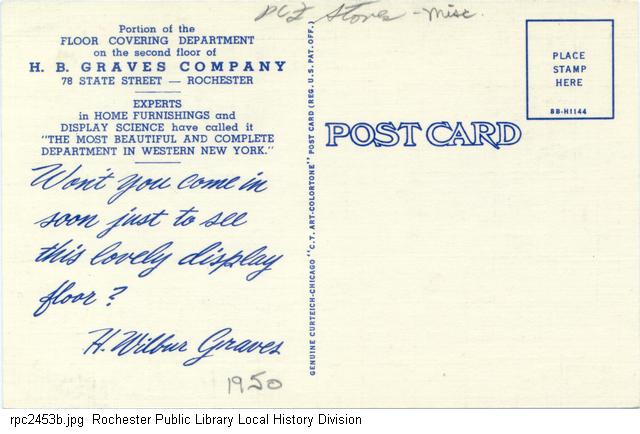 PCF Stores - Misc.
Portion of the
FLOOR COVERING DEPARTMENT
on the second floor of
H. B. GRAVES COMPANY
78 STATE STREET — ROCHESTER
EXPERTS
in HOME FURNISHINGS and
DISPLAY SCIENCE have called it
"THE MOST BEAUTIFUL AND COMPLETE
DEPARTMENT IN WESTERN NEW YORK."
Won't you come in
soon just to see
this lovely display
floor?
H. Wilbur Graves
1950
GENUINE CURTEICH-CHICAGO "C.T. ART-COLORTONE" POST CARD (REG. U.S. PAT. OFF.)
POST CARD
PLACE
STAMP
HERE
8B-H1144
rpc2453b.jpg Rochester Public Library Local History Division